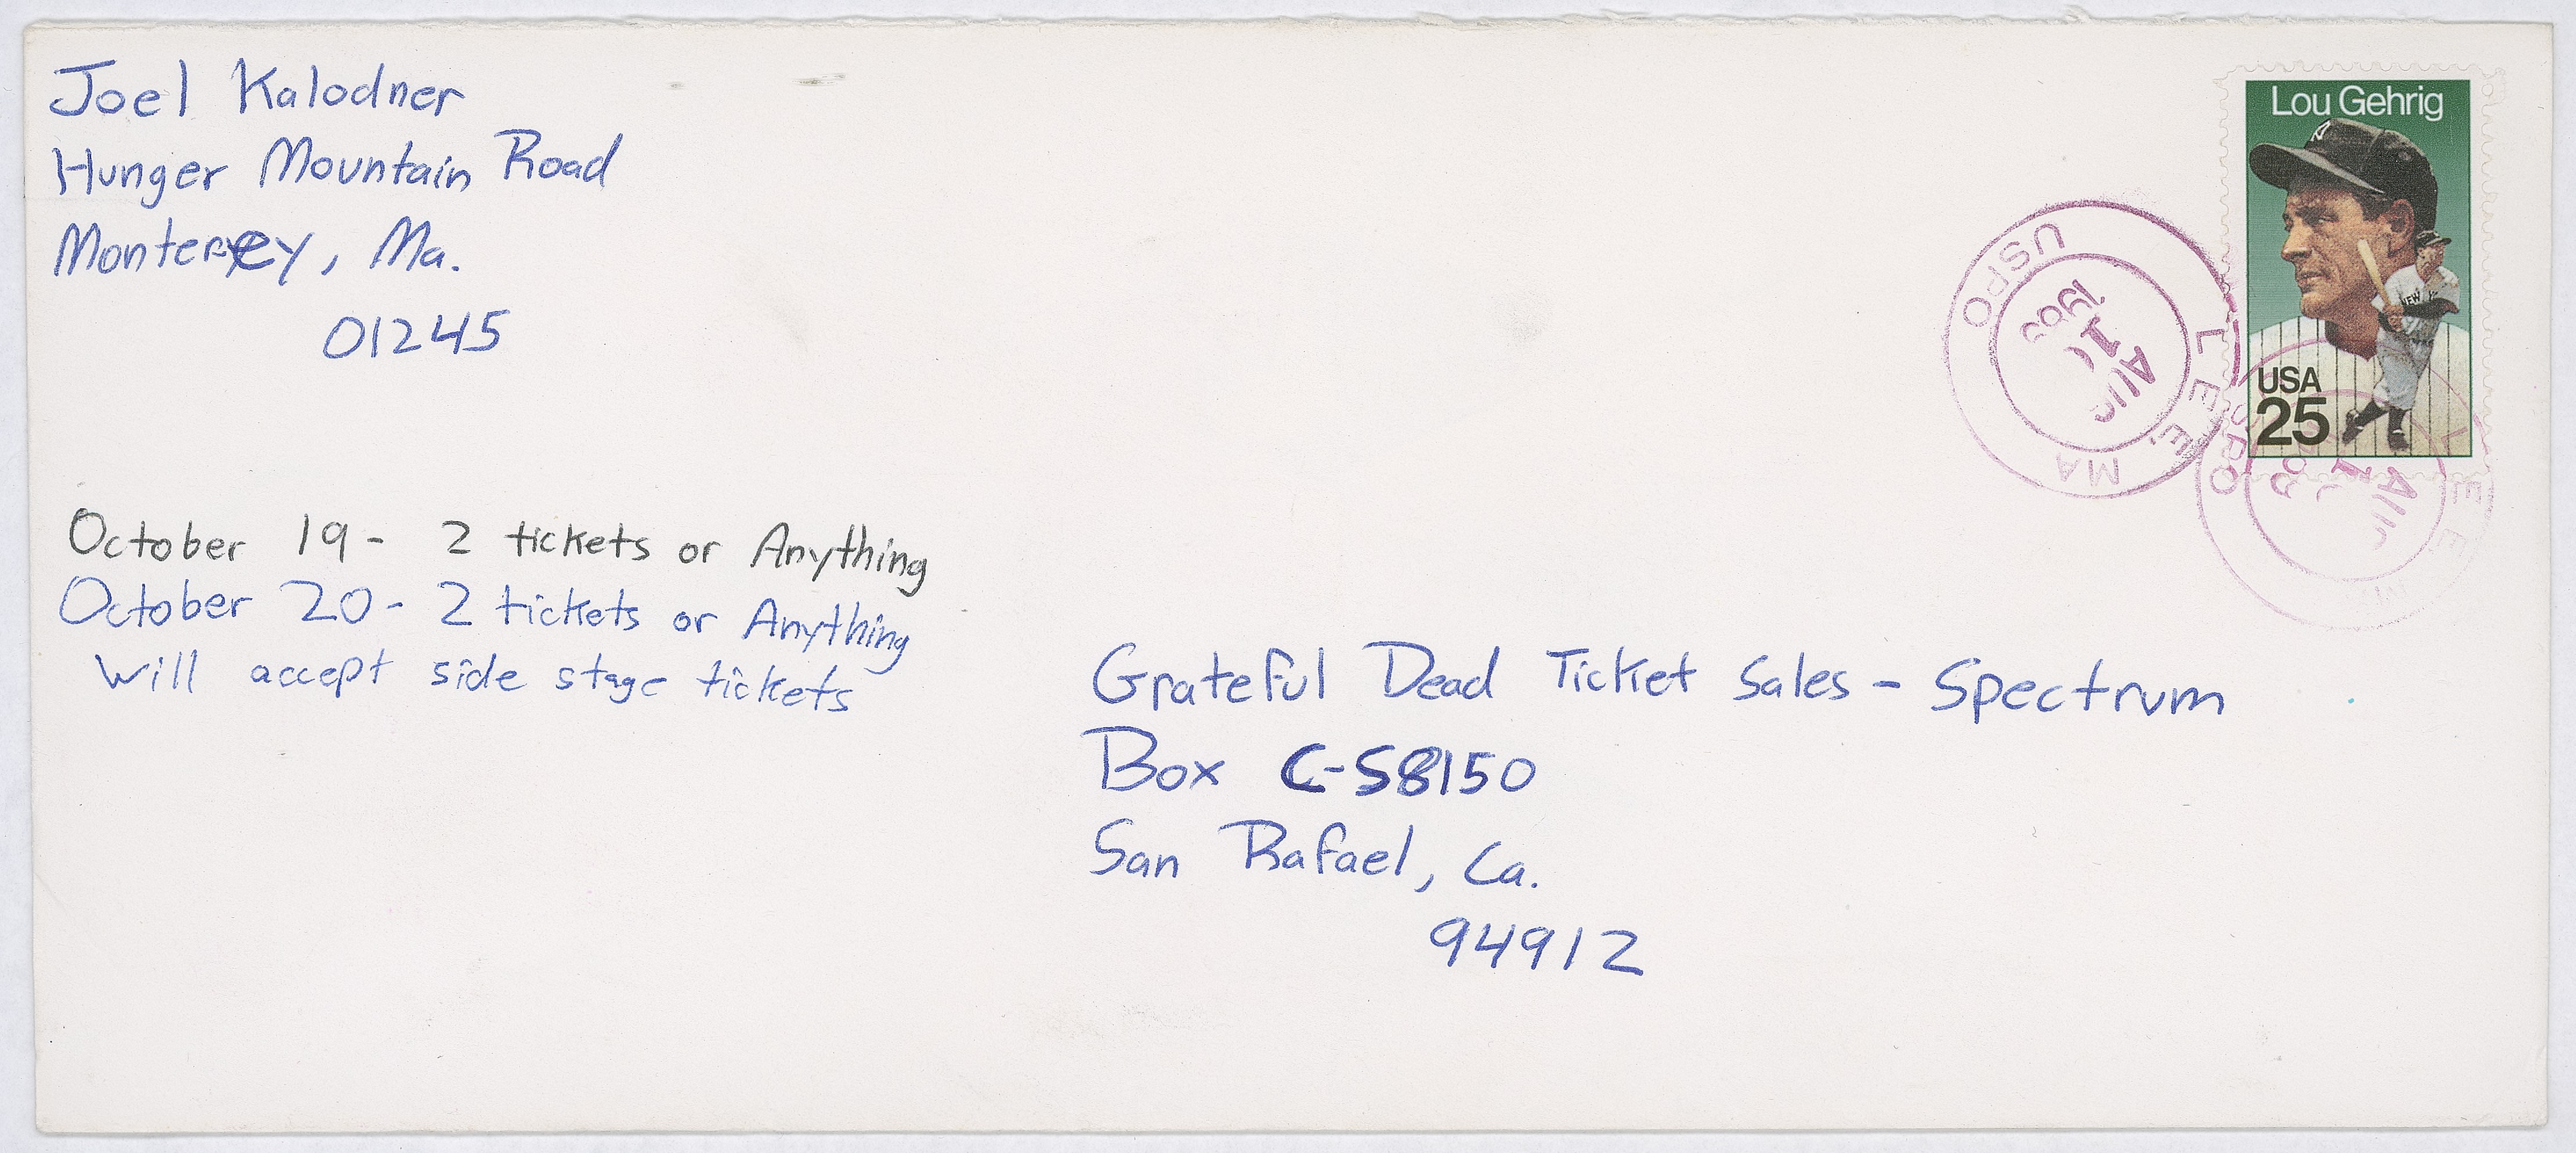 Joel Kalodner
Hunger Mountain Road
Monterey, Ma.
01245
Lou Gehrig
NEW
USA
25
USPO
LEE, MA
AUG
1989
USPO
LEE
AUG
October 19 - 2 tickets or Anything
October 20 - 2 tickets or Anything
Will accept side stage tickets
Grateful Dead Ticket Sales - Spectrum
Box C-S8150
San Rafael, Ca.
94912